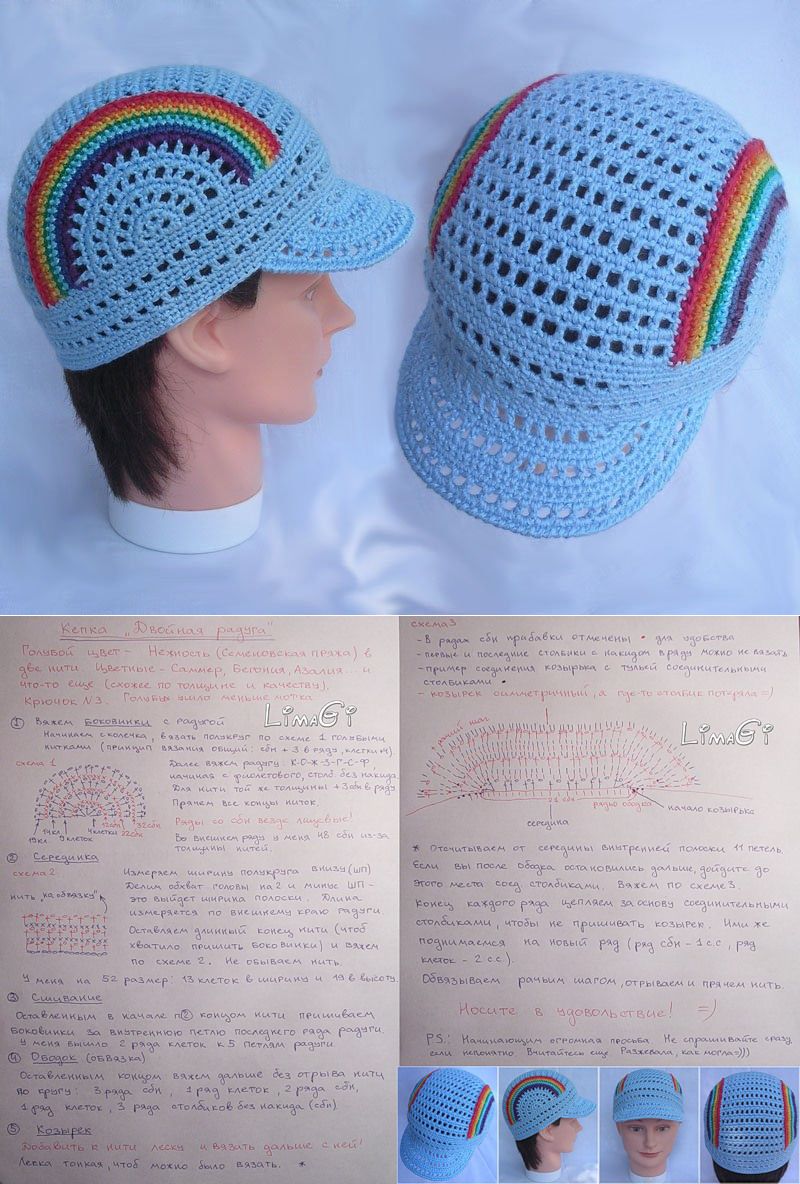 Кепка "Двойная радуга"
Голубой цвет - Нежность (Семеновская пряжа) в
две нити. Цветные - Саммер, Бегония, Азалия... и
что-то еще (схожее по толщине и качеству).
Крючок №3. Голубых ушло меньше мотка
LimaGi
① Вяжем Боковинки с радугой
Начинаем с колечка, вязать полукруг по схеме 1 голубыми
нитками (принцип вязания общий: сбн + 3 в ряду, клетки +4).
схема 1
Далее вяжем радугу: К-О-Ж-З-Г-С-Ф
начиная с фиолетового, столб без накида.
Для нити той же толщины +3 сбн в ряду
Прячем все концы ниток.
Ряды со сбн везде лицевые!
Во внешнем ряду у меня 48 сбн из-за
толщины нитей.
14кл.
19кл.
9 клеток
4 клетки
12сбн
22сбн
32сбн
② Серединка
схема 2
нить "на обвязку"
Измеряем ширину полукруга внизу (ШП)
Делим обхват головы на 2 и минус ШП -
это выйдет ширина полоски. Длина
измеряется по внешнему краю радуги
Оставляем длинный конец нити (чтоб
хватило пришить боковинки) и вяжем
по схеме 2. Не обываем нить.
У меня на 52 размер: 13 клеток в ширину и 19 в высоту.
③ Сшивание
Оставленным в начале п② концом нити пришиваем
боковинки за внутреннюю петлю последнего ряда радуги.
У меня вышло 2 ряда клеток к 5 петлям радуги
④ Ободок (обвязка)
Оставленным концом вяжем дальше без отрыва нити
по кругу: 3 ряда сбн, 1 ряд клеток, 2 ряда сбн,
1 ряд клеток, 3 ряда столбиков без накида (сбн)
⑤ Козырек
Добавить к нити леску и вязать дальше с ней!
Леска тонкая, чтоб можно было вязать. *
схема 3
- В рядах сбн прибавки отмечены • для удобства
- первые и последние столбики с накидом в ряду можно не вязать
- пример соединения козырька с тульей соединительными
столбиками •
- козырек симметричный, а где-то столбик потеряла =)
LimaGi
рачий шаг
21 сбн
рядно ободка
середина
начало козырька
* Отсчитываем от середины внутренней полоски 11 петель.
Если вы после ободка остановились дальше, дойдите до
этого места соед. столбиками. Вяжем по схеме 3.
Конец каждого ряда цепляем за основу соединительными
столбиками, чтобы не пришивать козырек. Ими же
поднимаемся на новый ряд (ряд сбн - 1 с.с., ряд
клеток - 2 с.с.).
Обвязываем рачьим шагом, отрываем и прячем нить.
Носите в удовольствие! =)
PS.: Начинающим огромная просьба. Не спрашивайте сразу,
если непонятно. Вчитайтесь еще. Разжевала, как могла =)))